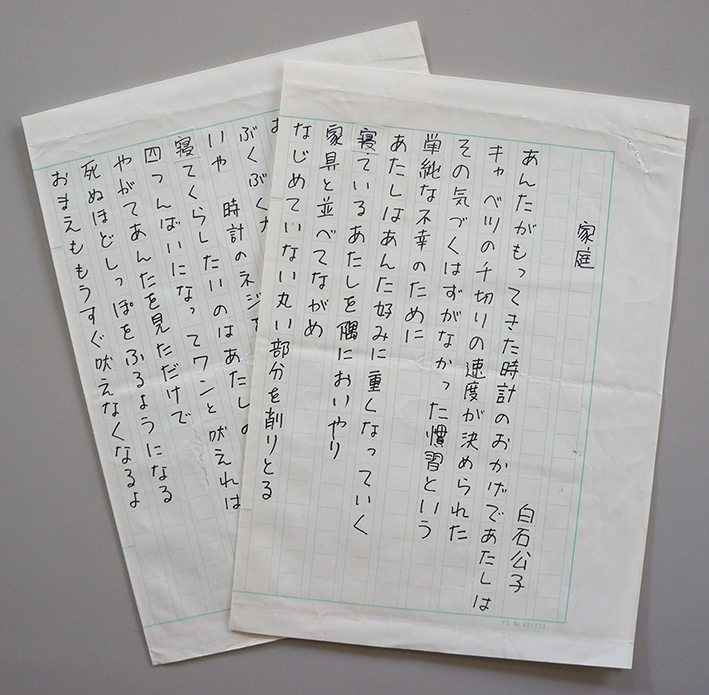 家庭
白石公子
あんたがもってきた時計のおかげであたしは
キャベツの千切りの速度が決められた
その気づくはずがなかった慣習という
単純な不幸のために
あたしはあんた好みに重くなっていく
寝ているあたしを隅においやり
家具と並べてながめ
なじめていない丸い部分を削りとる
ぶくぶく
いや　時計のネジを
寝てくらしたいのはあたしの
四つんばいになってワンと吠えれば
やがてあんたを見ただけで
死ぬほどしっぽをふるようになる
おまえももうすぐ吠えなくなるよ